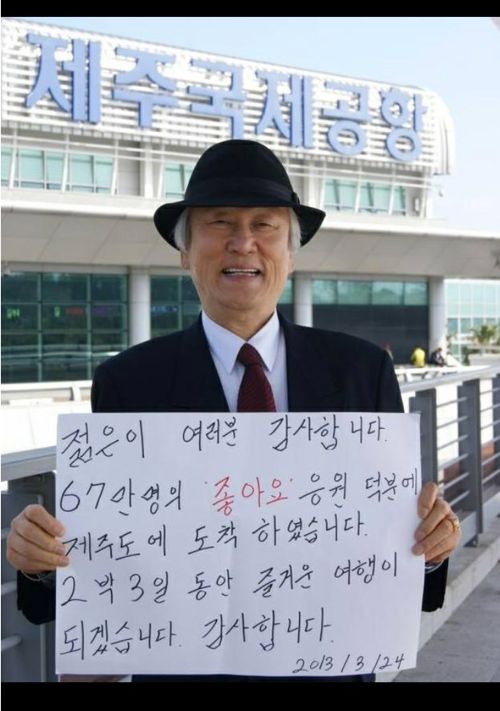 제주국제공항
젊은이 여러분 감사합니다.
67만명의 '좋아요' 응원 덕분에
제주도에 도착 하였습니다.
2박3일 동안 즐거운 여행이
되겠습니다. 감사합니다.
2013/3/24